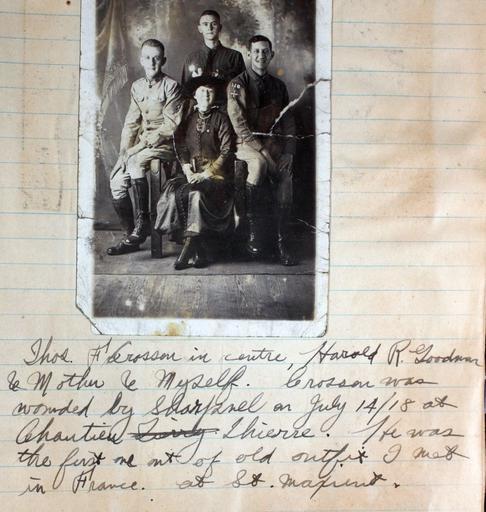 Thos. F Crosson in centre, Harold R. Goodman
& Mother & Myself. Crosson was
wounded by Sharpnel on July 14/18 at
Chautieu Thierre. He was
the first one out of old outfit I met
in France. at St. Maxient.